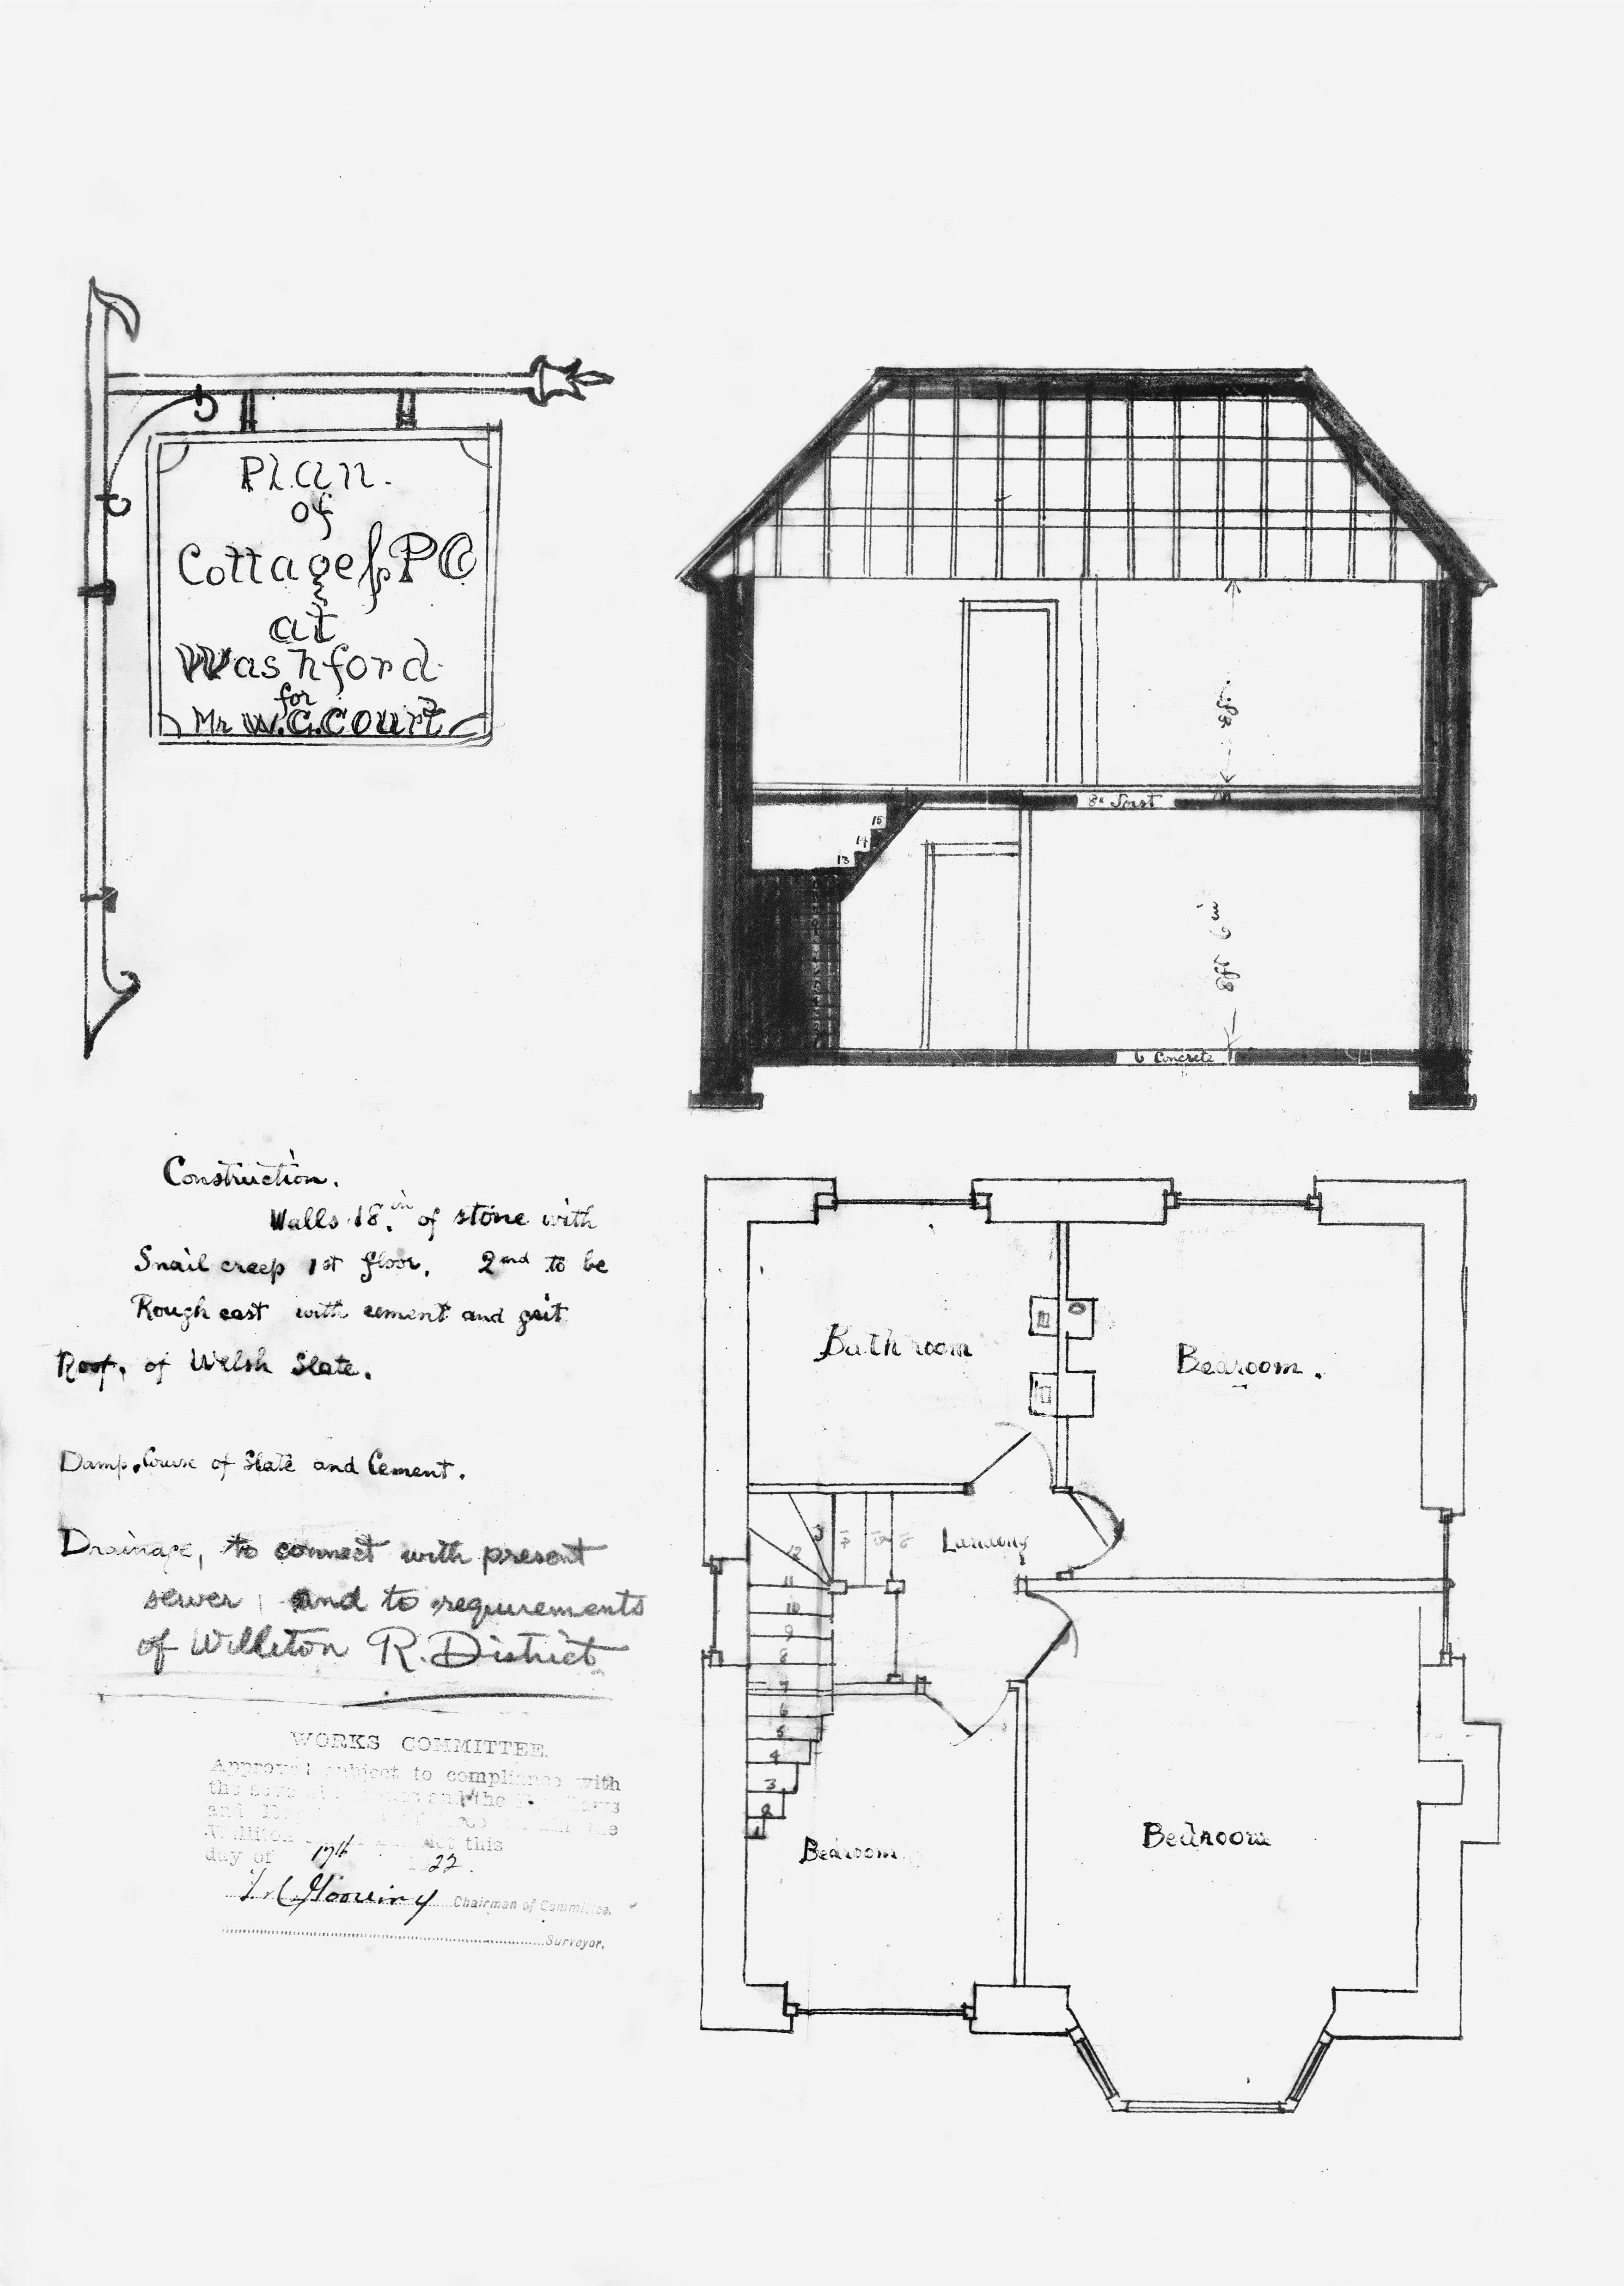 Plan.
of
Cottage & PO
at
Washford
for
Mr W.G. Court
8ft
8" Joist
15
14
13
8ft 6 in
6 Concrete
Construction.
Walls 18.in of stone with
Snail creep 1st floor. 2nd to be
Rough cast with cement and grit
Roof. of Welsh Slate.
Damp. Course of Slate and Cement.
Drainage, to connect with present
sewer and to requirements
of Williton R. District
WORKS COMMITTEE.
Approved subject to compliance with
the and the
and the
Williton this
day of 17th 22.
Chairman of Committee.
Surveyor.
Bathroom
Bearoom.
Landing
12
11
10
9
8
7
6
5
4
3
2
1
Bearoom
Bedroom